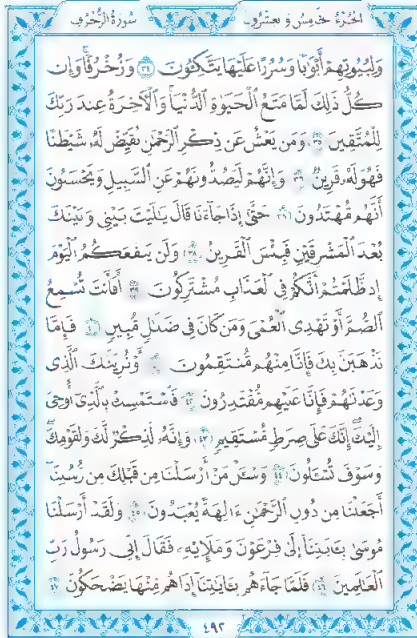 الجزء خمس وعشرون سورة الزخرف
وَلِبُيُوتِهِمْ أَبْوَٰبًا وَسُرُرًا عَلَيْهَا يَتَّكِـُٔونَ ٣٤ وَزُخْرُفًا وَإِن
كُلُّ ذَٰلِكَ لَمَّا مَتَٰعُ ٱلْحَيَوٰةِ ٱلدُّنْيَا وَٱلْءَاخِرَةُ عِندَ رَبِّكَ
لِلْمُتَّقِينَ ٣٥ وَمَن يَعْشُ عَن ذِكْرِ ٱلرَّحْمَٰنِ نُقَيِّضْ لَهُۥ شَيْطَٰنًا
فَهُوَ لَهُۥ قَرِينٌ ٣٦ وَإِنَّهُمْ لَيَصُدُّونَهُمْ عَنِ ٱلسَّبِيلِ وَيَحْسَبُونَ
أَنَّهُم مُّهْتَدُونَ ٣٧ حَتَّىٰ إِذَا جَآءَنَا قَالَ يَٰلَيْتَ بَيْنِى وَبَيْنَكَ
بُعْدَ ٱلْمَشْرِقَيْنِ فَبِئْسَ ٱلْقَرِينُ ٣٨ وَلَن يَنفَعَكُمُ ٱلْيَوْمَ
إِذ ظَّلَمْتُمْ أَنَّكُمْ فِى ٱلْعَذَابِ مُشْتَرِكُونَ ٣٩ أَفَأَنتَ تُسْمِعُ
ٱلصُّمَّ أَوْ تَهْدِى ٱلْعُمْىَ وَمَن كَانَ فِى ضَلَٰلٍ مُّبِينٍ ٤٠ فَإِمَّا
نَذْهَبَنَّ بِكَ فَإِنَّا مِنْهُم مُّنتَقِمُونَ ٤١ أَوْ نُرِيَنَّكَ ٱلَّذِى
وَعَدْنَٰهُمْ فَإِنَّا عَلَيْهِم مُّقْتَدِرُونَ ٤٢ فَٱسْتَمْسِكْ بِٱلَّذِىٓ أُوحِىَ
إِلَيْكَ إِنَّكَ عَلَىٰ صِرَٰطٍ مُّسْتَقِيمٍ ٤٣ وَإِنَّهُۥ لَذِكْرٌ لَّكَ وَلِقَوْمِكَ
وَسَوْفَ تُسْـَٔلُونَ ٤٤ وَسْـَٔلْ مَنْ أَرْسَلْنَا مِن قَبْلِكَ مِن رُّسُلِنَآ
أَجَعَلْنَا مِن دُونِ ٱلرَّحْمَٰنِ ءَالِهَةً يُعْبَدُونَ ٤٥ وَلَقَدْ أَرْسَلْنَا
مُوسَىٰ بِـَٔايَٰتِنَآ إِلَىٰ فِرْعَوْنَ وَمَلَإِي۟هِۦ فَقَالَ إِنِّى رَسُولُ رَبِّ
ٱلْعَٰلَمِينَ ٤٦ فَلَمَّا جَآءَهُم بِـَٔايَٰتِنَآ إِذَا هُم مِّنْهَا يَضْحَكُونَ ٤٧
٤٩٢